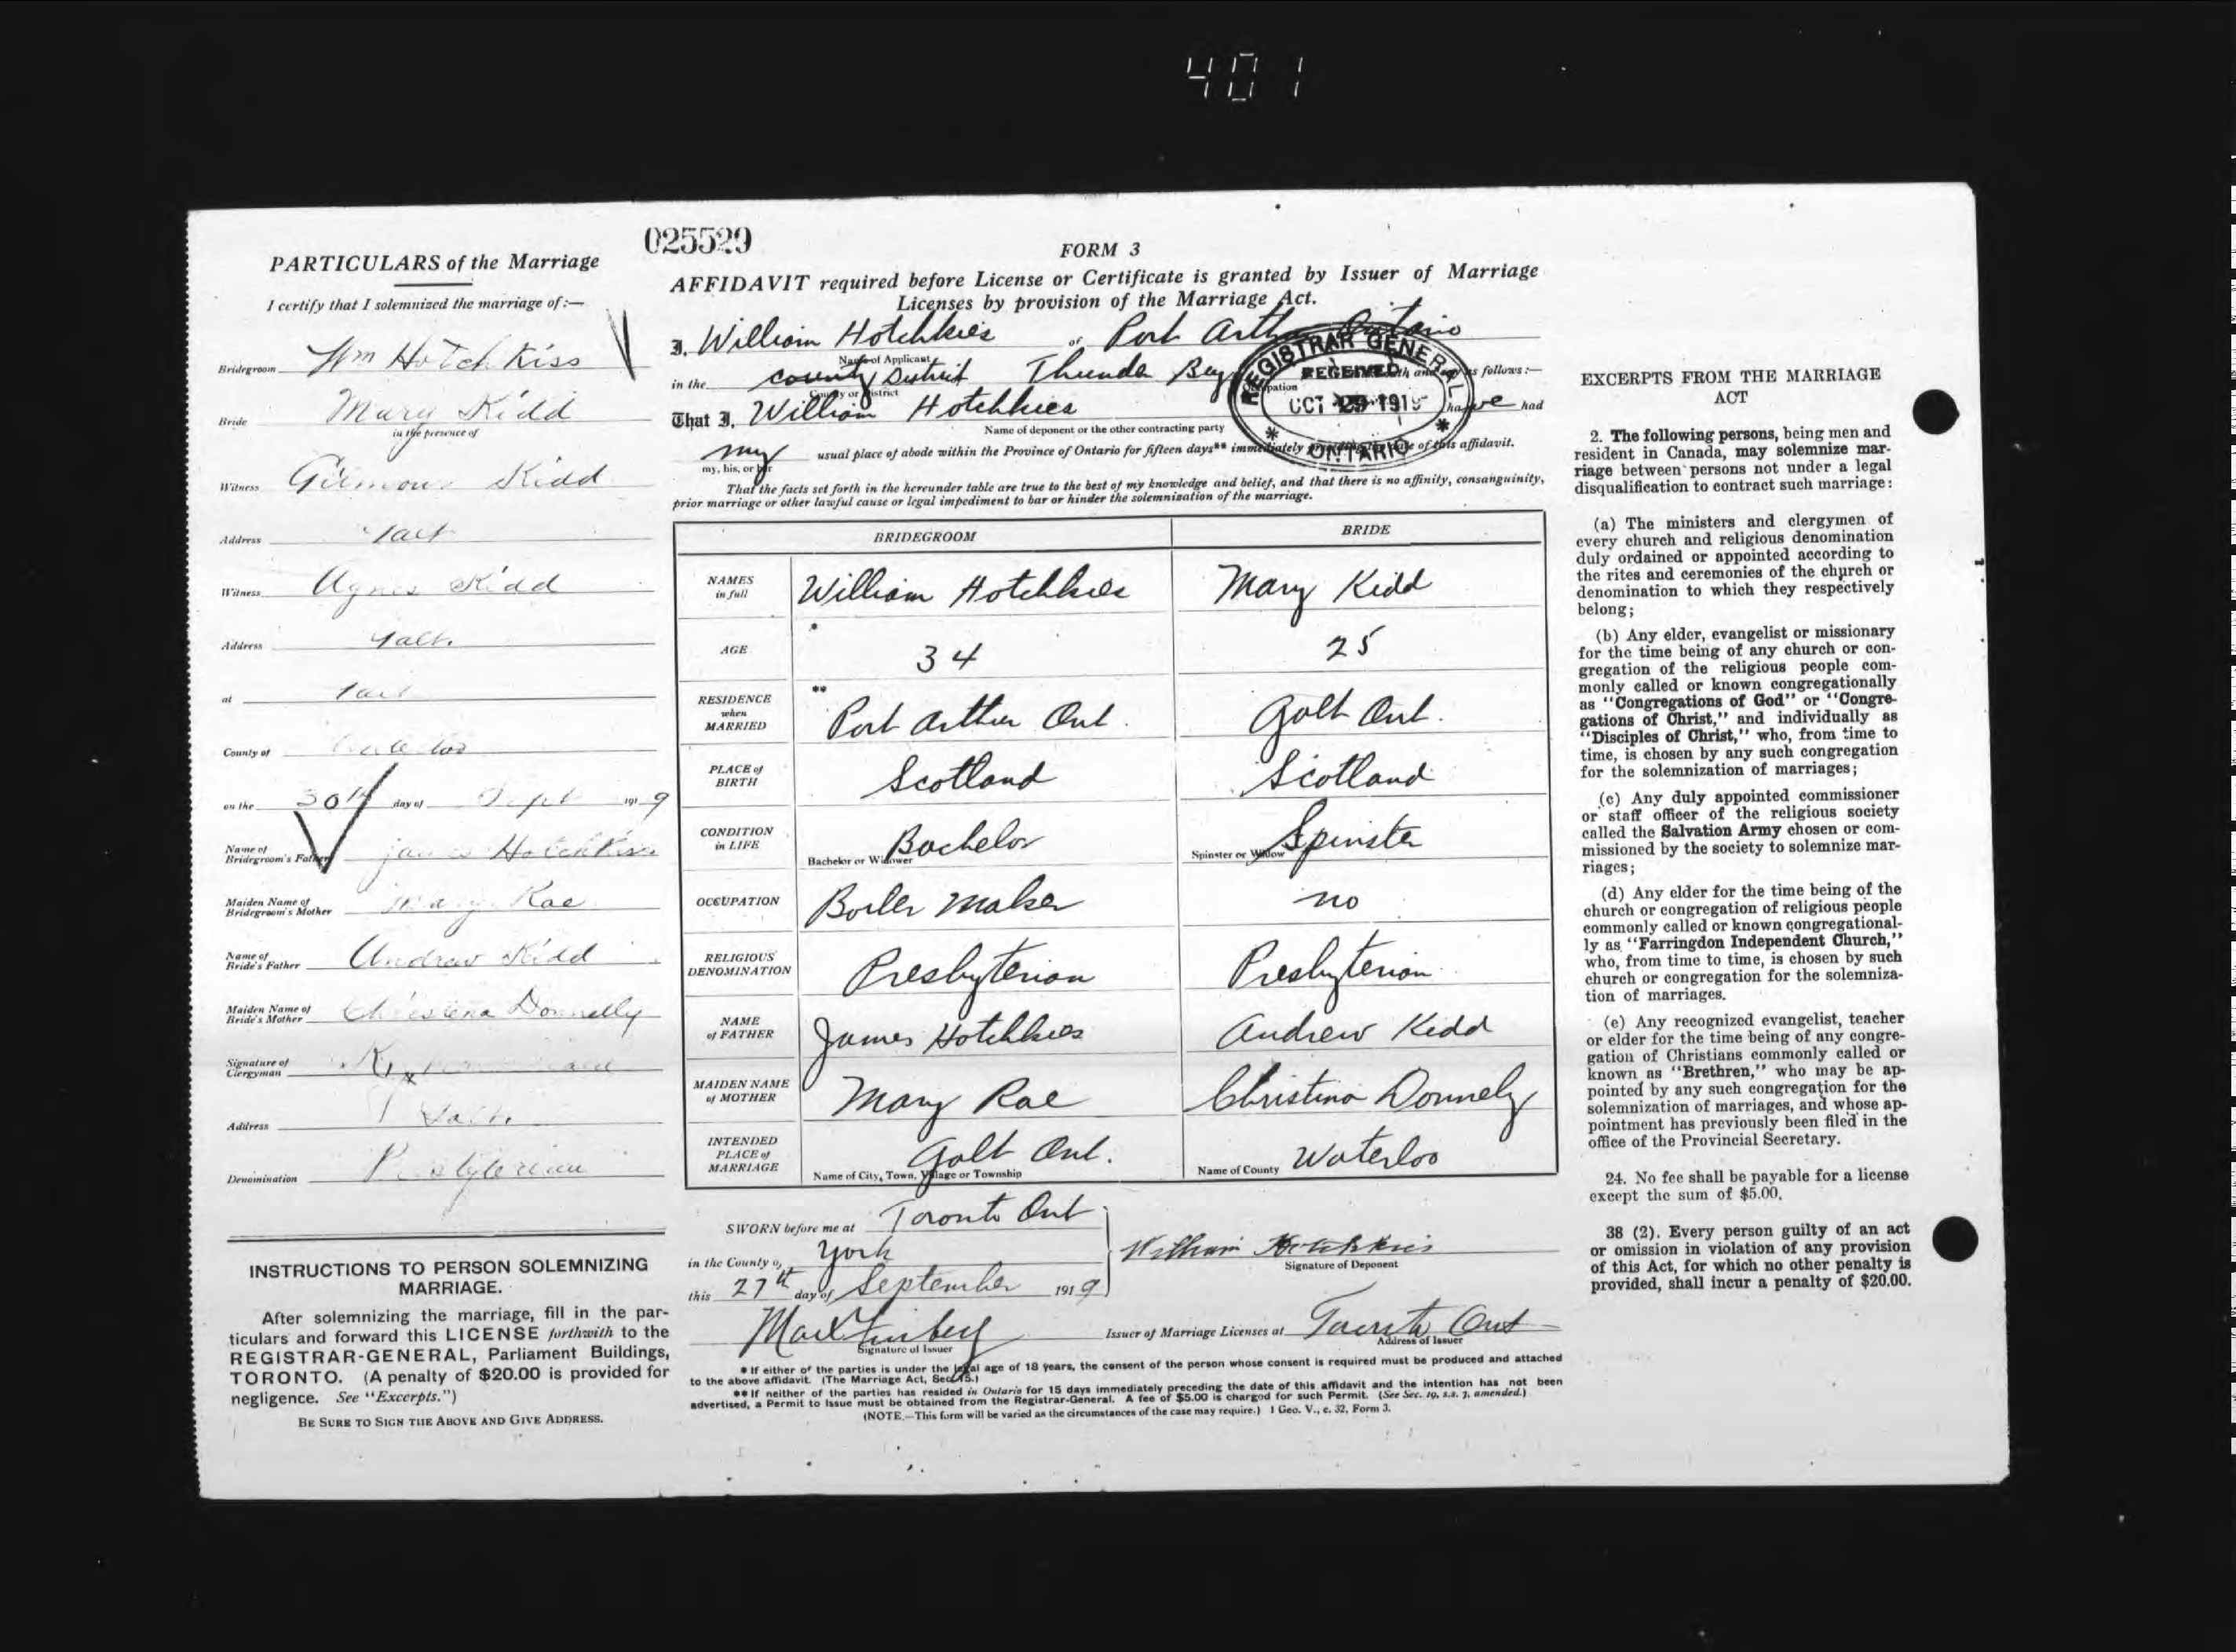 401
025529
PARTICULARS of the Marriage
I certify that I solemnized the marriage of:—
Bridegroom Wm Hotchkiss
Bride Mary Kidd
in the presence of
Witness Gilmour Kidd
Address Galt
Witness Agnes Kidd
Address Galt.
at Galt
County of Waterloo
on the 30th day of Sept 1919
Name of Bridegroom's Father James Hotchkiss
Maiden Name of Bridegroom's Mother Mary Rae
Name of Bride's Father Andrew Kidd
Maiden Name of Bride's Mother Donnelly
Signature of Clergyman
Address Galt.
Denomination Presbyterian
INSTRUCTIONS TO PERSON SOLEMNIZING
MARRIAGE.
After solemnizing the marriage, fill in the par-
ticulars and forward this LICENSE forthwith to the
REGISTRAR-GENERAL, Parliament Buildings,
TORONTO. (A penalty of $20.00 is provided for
negligence. See "Excerpts.")
BE SURE TO SIGN THE ABOVE AND GIVE ADDRESS.
FORM 3
AFFIDAVIT required before License or Certificate is granted by Issuer of Marriage
Licenses by provision of the Marriage Act.
I, William Hotchkies of Port Arthur Ontario
Name of Applicant
in the county District Thunder Bay as follows:—
County or District
That I, William Hotchkies have had
Name of deponent or the other contracting party
my usual place of abode within the Province of Ontario for fifteen days** immediately of this affidavit.
my, his, or her
REGISTRAR GENERAL
RECEIVED
OCT 29 1919
ONTARIO
That the facts set forth in the hereunder table are true to the best of my knowledge and belief, and that there is no affinity, consanguinity,
prior marriage or other lawful cause or legal impediment to bar or hinder the solemnization of the marriage.
BRIDEGROOM BRIDE
NAMES in full William Hotchkies Mary Kidd
AGE * 34 25
RESIDENCE when MARRIED ** Port Arthur Ont. Galt Ont.
PLACE of BIRTH Scotland Scotland
CONDITION in LIFE Bachelor or Widower Bachelor Spinster or Widow Spinster
OCCUPATION Boiler Maker no
RELIGIOUS DENOMINATION Presbyterian Presbyterian
NAME of FATHER James Hotchkies Andrew Kidd
MAIDEN NAME of MOTHER Mary Rae Christina Donnely
INTENDED PLACE of MARRIAGE Galt Ont. Name of City, Town, Village or Township Name of County Waterloo
SWORN before me at Toronto Ont
in the County of York
this 27th day of September 1919
William Hotchkies
Signature of Deponent
Signature of Issuer
Issuer of Marriage Licenses at Toronto Ont
Address of Issuer
* If either of the parties is under the legal age of 18 years, the consent of the person whose consent is required must be produced and attached
to the above affidavit. (The Marriage Act, Sec. 15.)
** If neither of the parties has resided in Ontario for 15 days immediately preceding the date of this affidavit and the intention has not been
advertised, a Permit to Issue must be obtained from the Registrar-General. A fee of $5.00 is charged for such Permit. (See Sec. 19, s.s. 3, amended.)
(NOTE.—This form will be varied as the circumstances of the case may require.) 1 Geo. V., c. 32, Form 3.
EXCERPTS FROM THE MARRIAGE
ACT
2. The following persons, being men and
resident in Canada, may solemnize mar-
riage between persons not under a legal
disqualification to contract such marriage:
(a) The ministers and clergymen of
every church and religious denomination
duly ordained or appointed according to
the rites and ceremonies of the church or
denomination to which they respectively
belong;
(b) Any elder, evangelist or missionary
for the time being of any church or con-
gregation of the religious people com-
monly called or known congregationally
as "Congregations of God" or "Congre-
gations of Christ," and individually as
"Disciples of Christ," who, from time to
time, is chosen by any such congregation
for the solemnization of marriages;
(c) Any duly appointed commissioner
or staff officer of the religious society
called the Salvation Army chosen or com-
missioned by the society to solemnize mar-
riages;
(d) Any elder for the time being of the
church or congregation of religious people
commonly called or known congregational-
ly as "Farringdon Independent Church,"
who, from time to time, is chosen by such
church or congregation for the solemniza-
tion of marriages.
(e) Any recognized evangelist, teacher
or elder for the time being of any congre-
gation of Christians commonly called or
known as "Brethren," who may be ap-
pointed by any such congregation for the
solemnization of marriages, and whose ap-
pointment has previously been filed in the
office of the Provincial Secretary.
24. No fee shall be payable for a license
except the sum of $5.00.
38 (2). Every person guilty of an act
or omission in violation of any provision
of this Act, for which no other penalty is
provided, shall incur a penalty of $20.00.